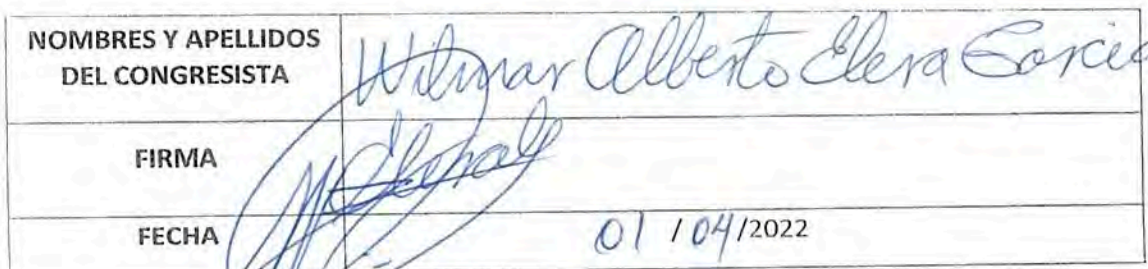 NOMBRES Y APELLIDOS
DEL CONGRESISTA
Wilmar Alberto Elera Garcia
FIRMA
FECHA
01 / 04 / 2022